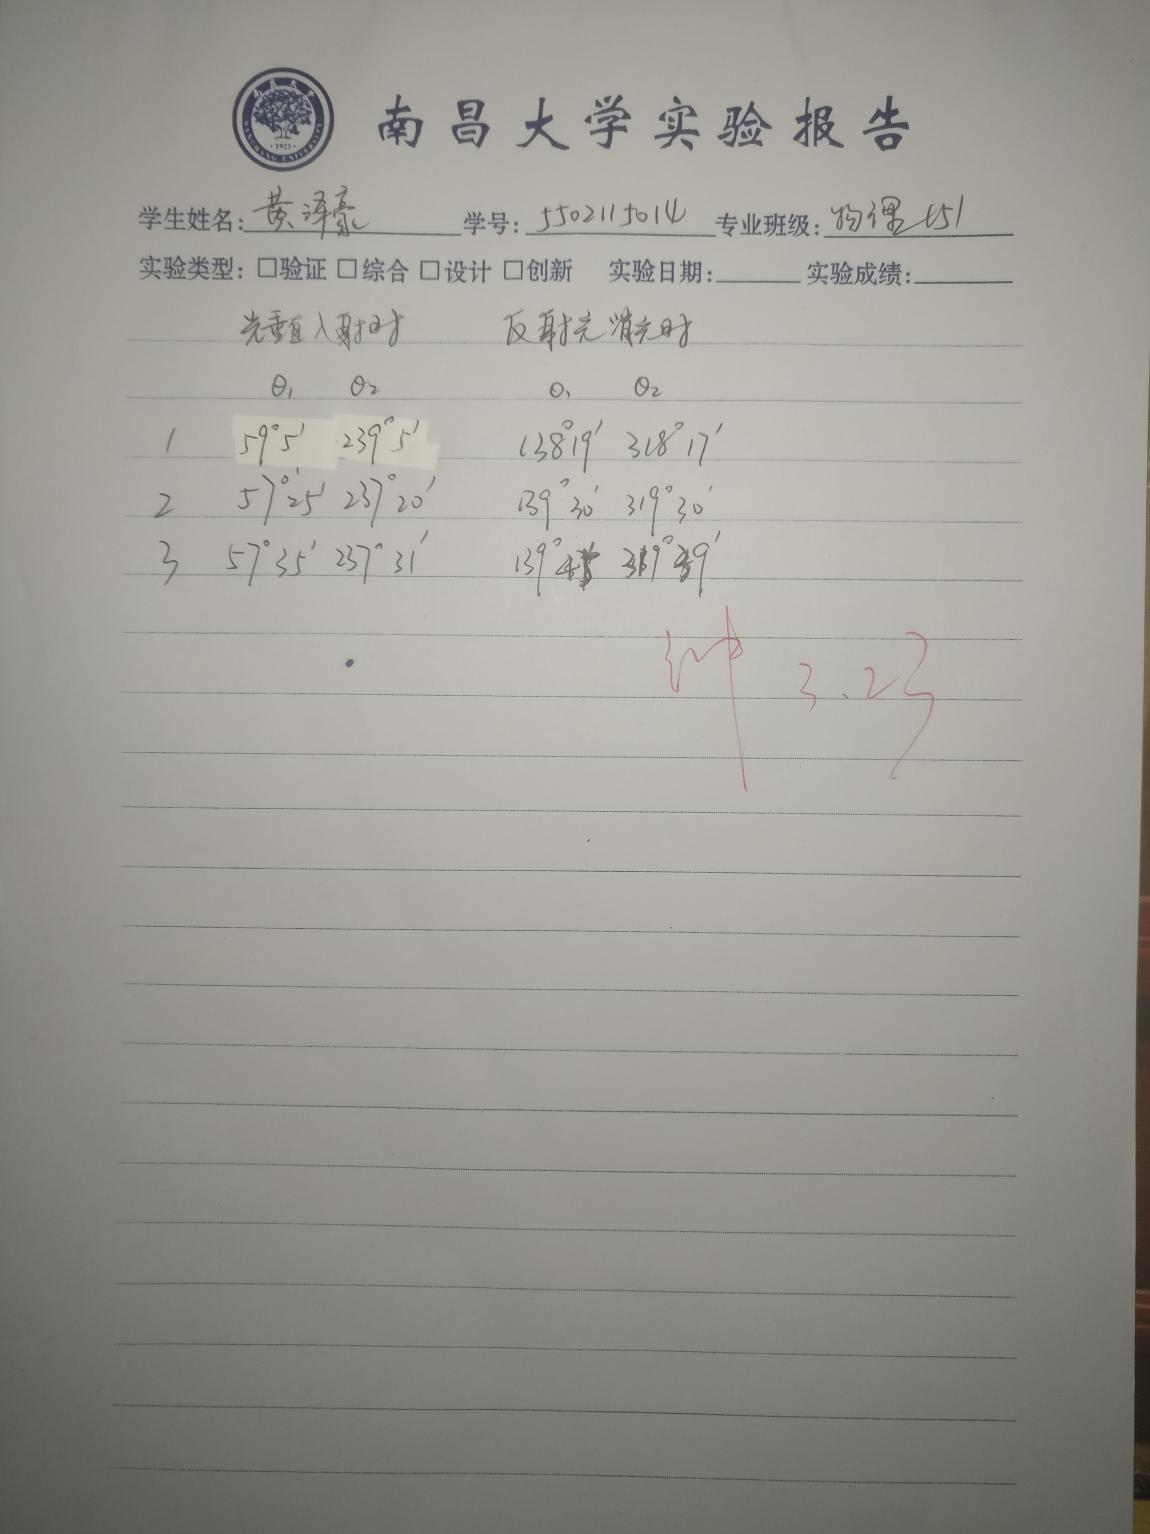 南昌大学实验报告
学生姓名: 黄泽豪 学号: 5502115014 专业班级: 物理151
实验类型: □验证 □综合 □设计 □创新 实验日期: 实验成绩:
光垂直入射时 反射光消光时
θ₁ θ₂ θ₁ θ₂
1 59°5′ 239°5′ 138°19′ 318°17′
2 57°25′ 237°20′ 139°30′ 319°30′
3 57°35′ 237°31′ 139° 319°39′
3.23